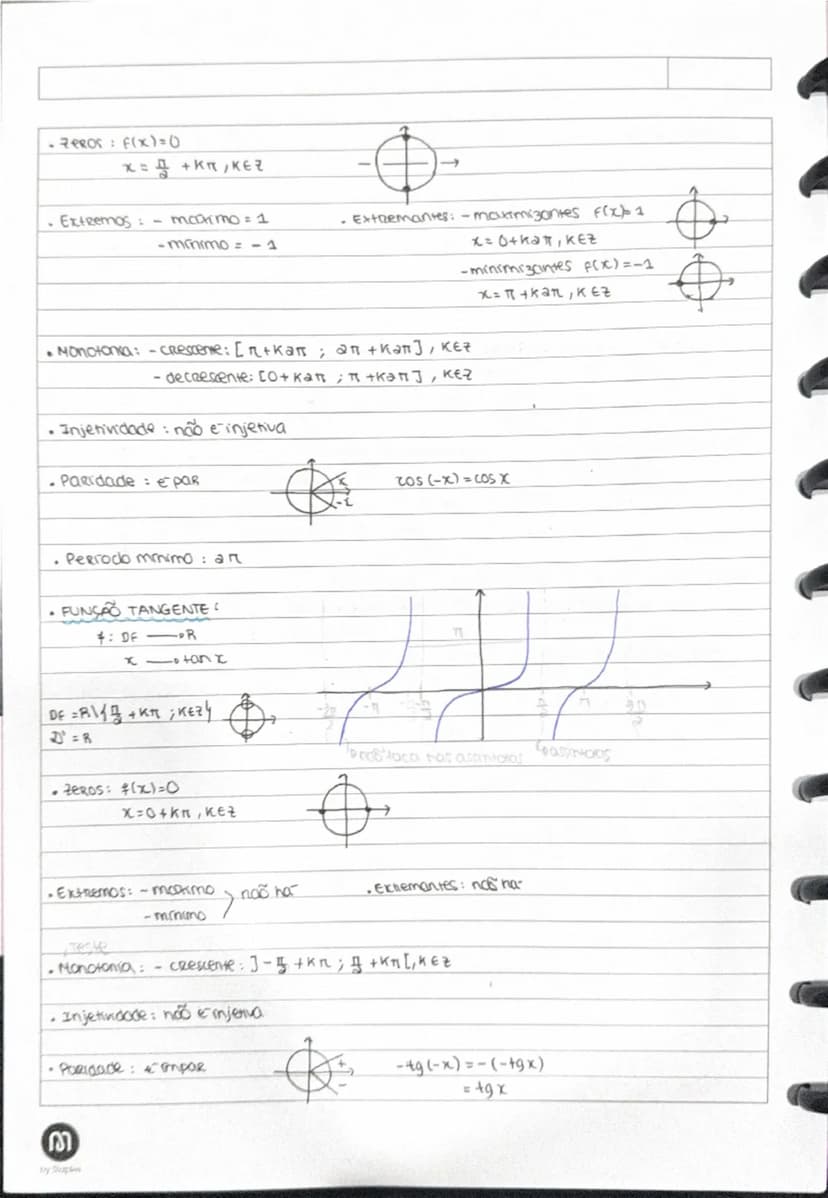 • Zeros : f(x)=0
x = π/2 + Kπ , K∈Z
• Extremos : - maximo = 1
- mínimo = - 1
• Extremantes: - maximizantes f(x)=1
x = 0+K2π, K∈Z
- minimizantes f(x) = -1
x = π + K2π , K∈Z
• Monotonia: - crescente: [π+K2π ; 2π + K2π] , K∈Z
- decrescente: [0+K2π ; π +K2π] , K∈Z
• Injetividade : não é injetiva
• Paridade : é par
x
-x
cos (-x) = cos x
• Período mínimo : 2π
• FUNÇÃO TANGENTE :
f: DF → R
x → tan x
π
-3π/2 -π -π/2 π/2 π 3π/2
DF = R\{π/2 + Kπ ; K∈Z}
D' = R
• Zeros: f(x)=0
x = 0+Kπ , K∈Z
• Extremos: - maximo
- mínimo
não há
• Extremantes: não há
, teste
• Monotonia: - crescente: ]-π/2 + Kπ ; π/2 + Kπ[, K∈Z
• Injetividade: não é injetiva
• Paridade : é ímpar
+
-
-tg(-x) = -(-tgx)
= tgx
M
by Staples